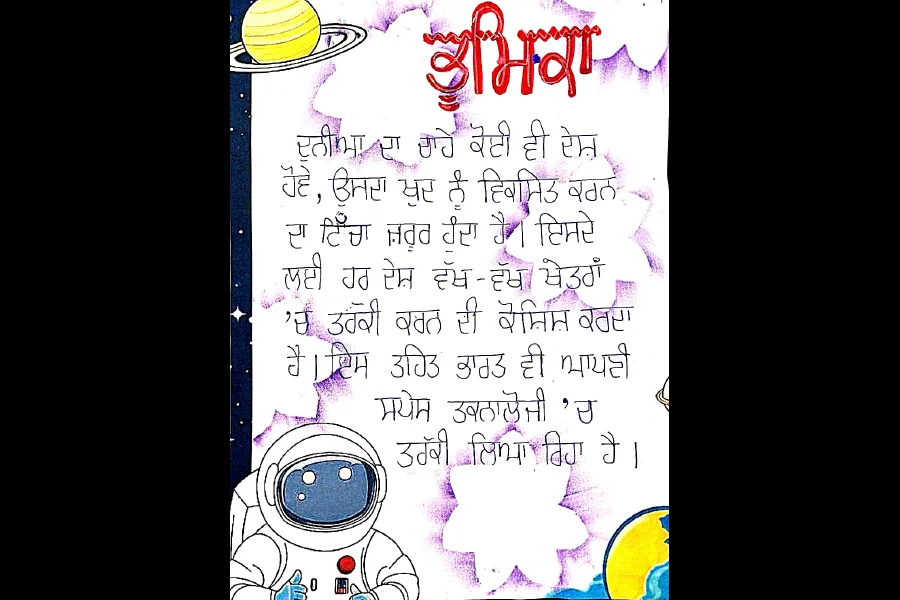 ਭੂਮਿਕਾ
ਦੁਨੀਆ ਦਾ ਚਾਹੇ ਕੋਈ ਵੀ ਦੇਸ਼
ਹੋਵੇ, ਉਸਦਾ ਖੁਦ ਨੂੰ ਵਿਕਸਿਤ ਕਰਨ
ਦਾ ਟਿੱਚਾ ਜ਼ਰੂਰ ਹੁੰਦਾ ਹੈ। ਇਸਦੇ
ਲਈ ਹਰ ਦੇਸ਼ ਵੱਖ-ਵੱਖ ਖੇਤਰਾਂ
'ਚ ਤਰੱਕੀ ਕਰਨ ਦੀ ਕੋਸ਼ਿਸ਼ ਕਰਦਾ
ਹੈ। ਇਸ ਤਹਿਤ ਭਾਰਤ ਵੀ ਆਪਣੀ
ਸਪੇਸ ਤਕਨਾਲੋਜੀ 'ਚ
ਤਰੱਕੀ ਲਿਆ ਰਿਹਾ ਹੈ।